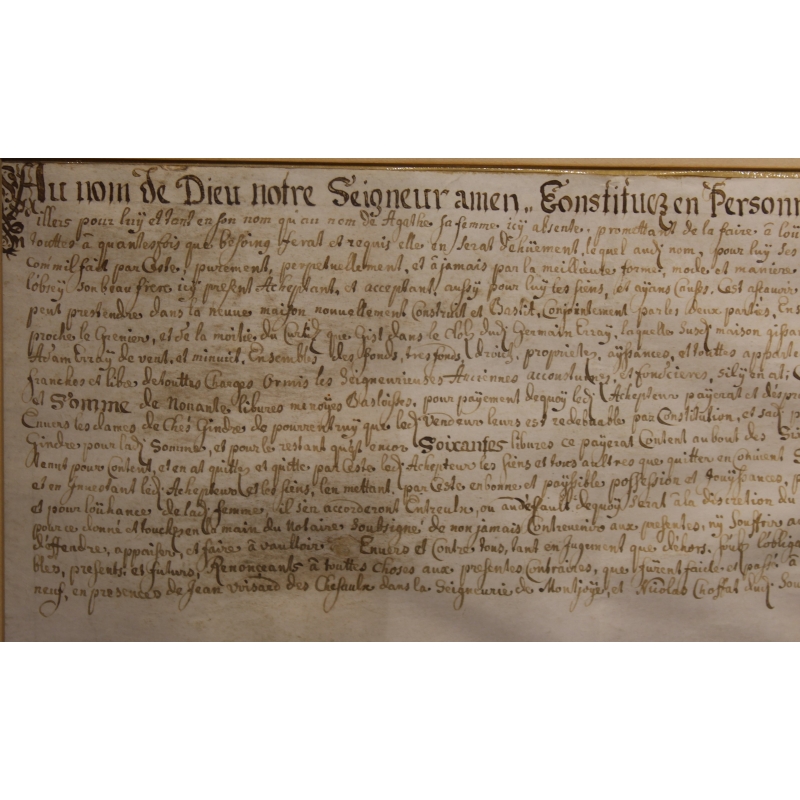 Au nom de Dieu notre Seigneur amen,, Constituez en Personn
illers pour luy et tant en son nom qu'au nom de Agathe sa femme icy absente, promettant de la faire à loü
touttes à quantesfois que besoing serat et requis elle en serat dehüement, lequel audj nom, pour luy ses
comm'il fait par ceste, purement, perpetuellement, et à jamais par la meillieure forme, mode et maniere
son beau frere icy present Acheptant, et acceptant, aussy pour luy les siens, et ayans causes. c'est assavoir
peut prestendre dans la neuve maison nouvellement Construit et Bastit, Conjointement par les deux parties, Ens
proche le Grenier, et de la moitie du Curtil que gist dans le Clos dudj Germain Erray, laquelle susdj maison gissan
Adam Erray de vent, et minuict, Ensembles des fonds, tresfonds, droicts, proprietes, ayssances, et touttes apparte
franches et libre de touttes Charges Ormis les Seigneurieuses Anciennes accoustumes, et foncieres, sil y en at;
et Somme de Nonante libures monoyes Basloisses, pour payement dequoy ledj Achepteur payerat et despe
Envers les dames de chés Gindre de pourrentruy que ledj Vendeur leurs est redebuable par Constitution, et sadj
Gindre pour ladj Somme, et pour le restant qu'est encor Soixantes libures ce payerat Content au bout des Six
tenut pour Content, et en at quitté, et quitte par Ceste ledj Achepteur les siens et tous aultres que quitter en convient
et en Invectant ledj Achepteur et les siens, l'en mettant, par Ceste en bonne et payssible possession et Jouyssances,
et pour loühance de ladj femme, il s'en accorderont Entreulx, ou au deffault dequoy serat à la discretion du
pour ce donné et touchez en la main du Notaire soubsigné de non jamais Contrevenir aux presentes, ny souffrir
deffendre, appaiser, et faire à vaulloir Envers et Contre tous, tant en Jugement que dehors, soubz l'obliga
bles, presents, et futurs, Renonceants à touttes choses aux presentes Contraires, que furent faicte et passé à
neuf, en presences de Jean Voisard des Chesaulx dans la Seigneurie de Montjoye, et Nicolas Choffat dudj